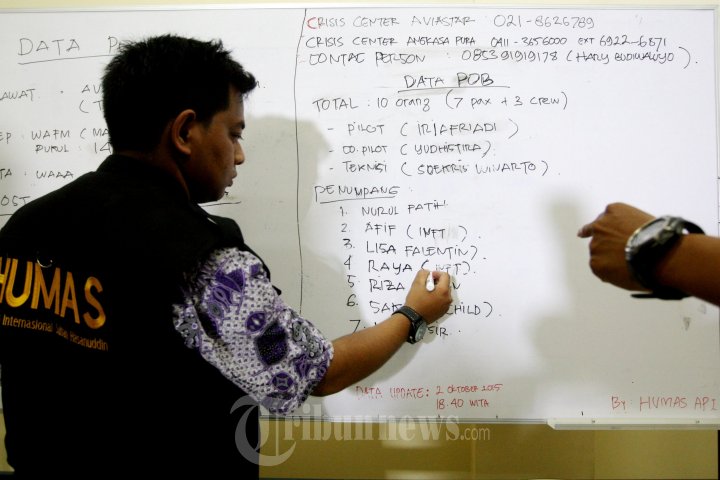 DATA
CRISIS CENTER AVIASTAR 021-8626789
CRISIS CENTER ANGKASA PURA 0411-3656000 EXT 6922-6871
CONTAC PERSON : 085391919178 (HARY BUDIWALUYO).
DATA POB
TOTAL : 10 orang (7 pax + 3 crew)
- PILOT ( IRI AFRIADI )
- CO.PILOT ( YUDHISTIRA).
- TEKNISI ( SOEKRIS WINARTO)
PENUMPANG :
1. NURUL FATIH
2. AFIF ( INFT ).
3. LISA FALENTIN).
4 RAYA ( INFT).
5 RIZA
6. CHILD).
7.
DATA UPDATE: 2 OKTOBER 2015
18.40 WITA
BY: HUMAS API
PUKUL : 14
WAAA
HUMAS
Internasional Hasanuddin
Tribunnews.com